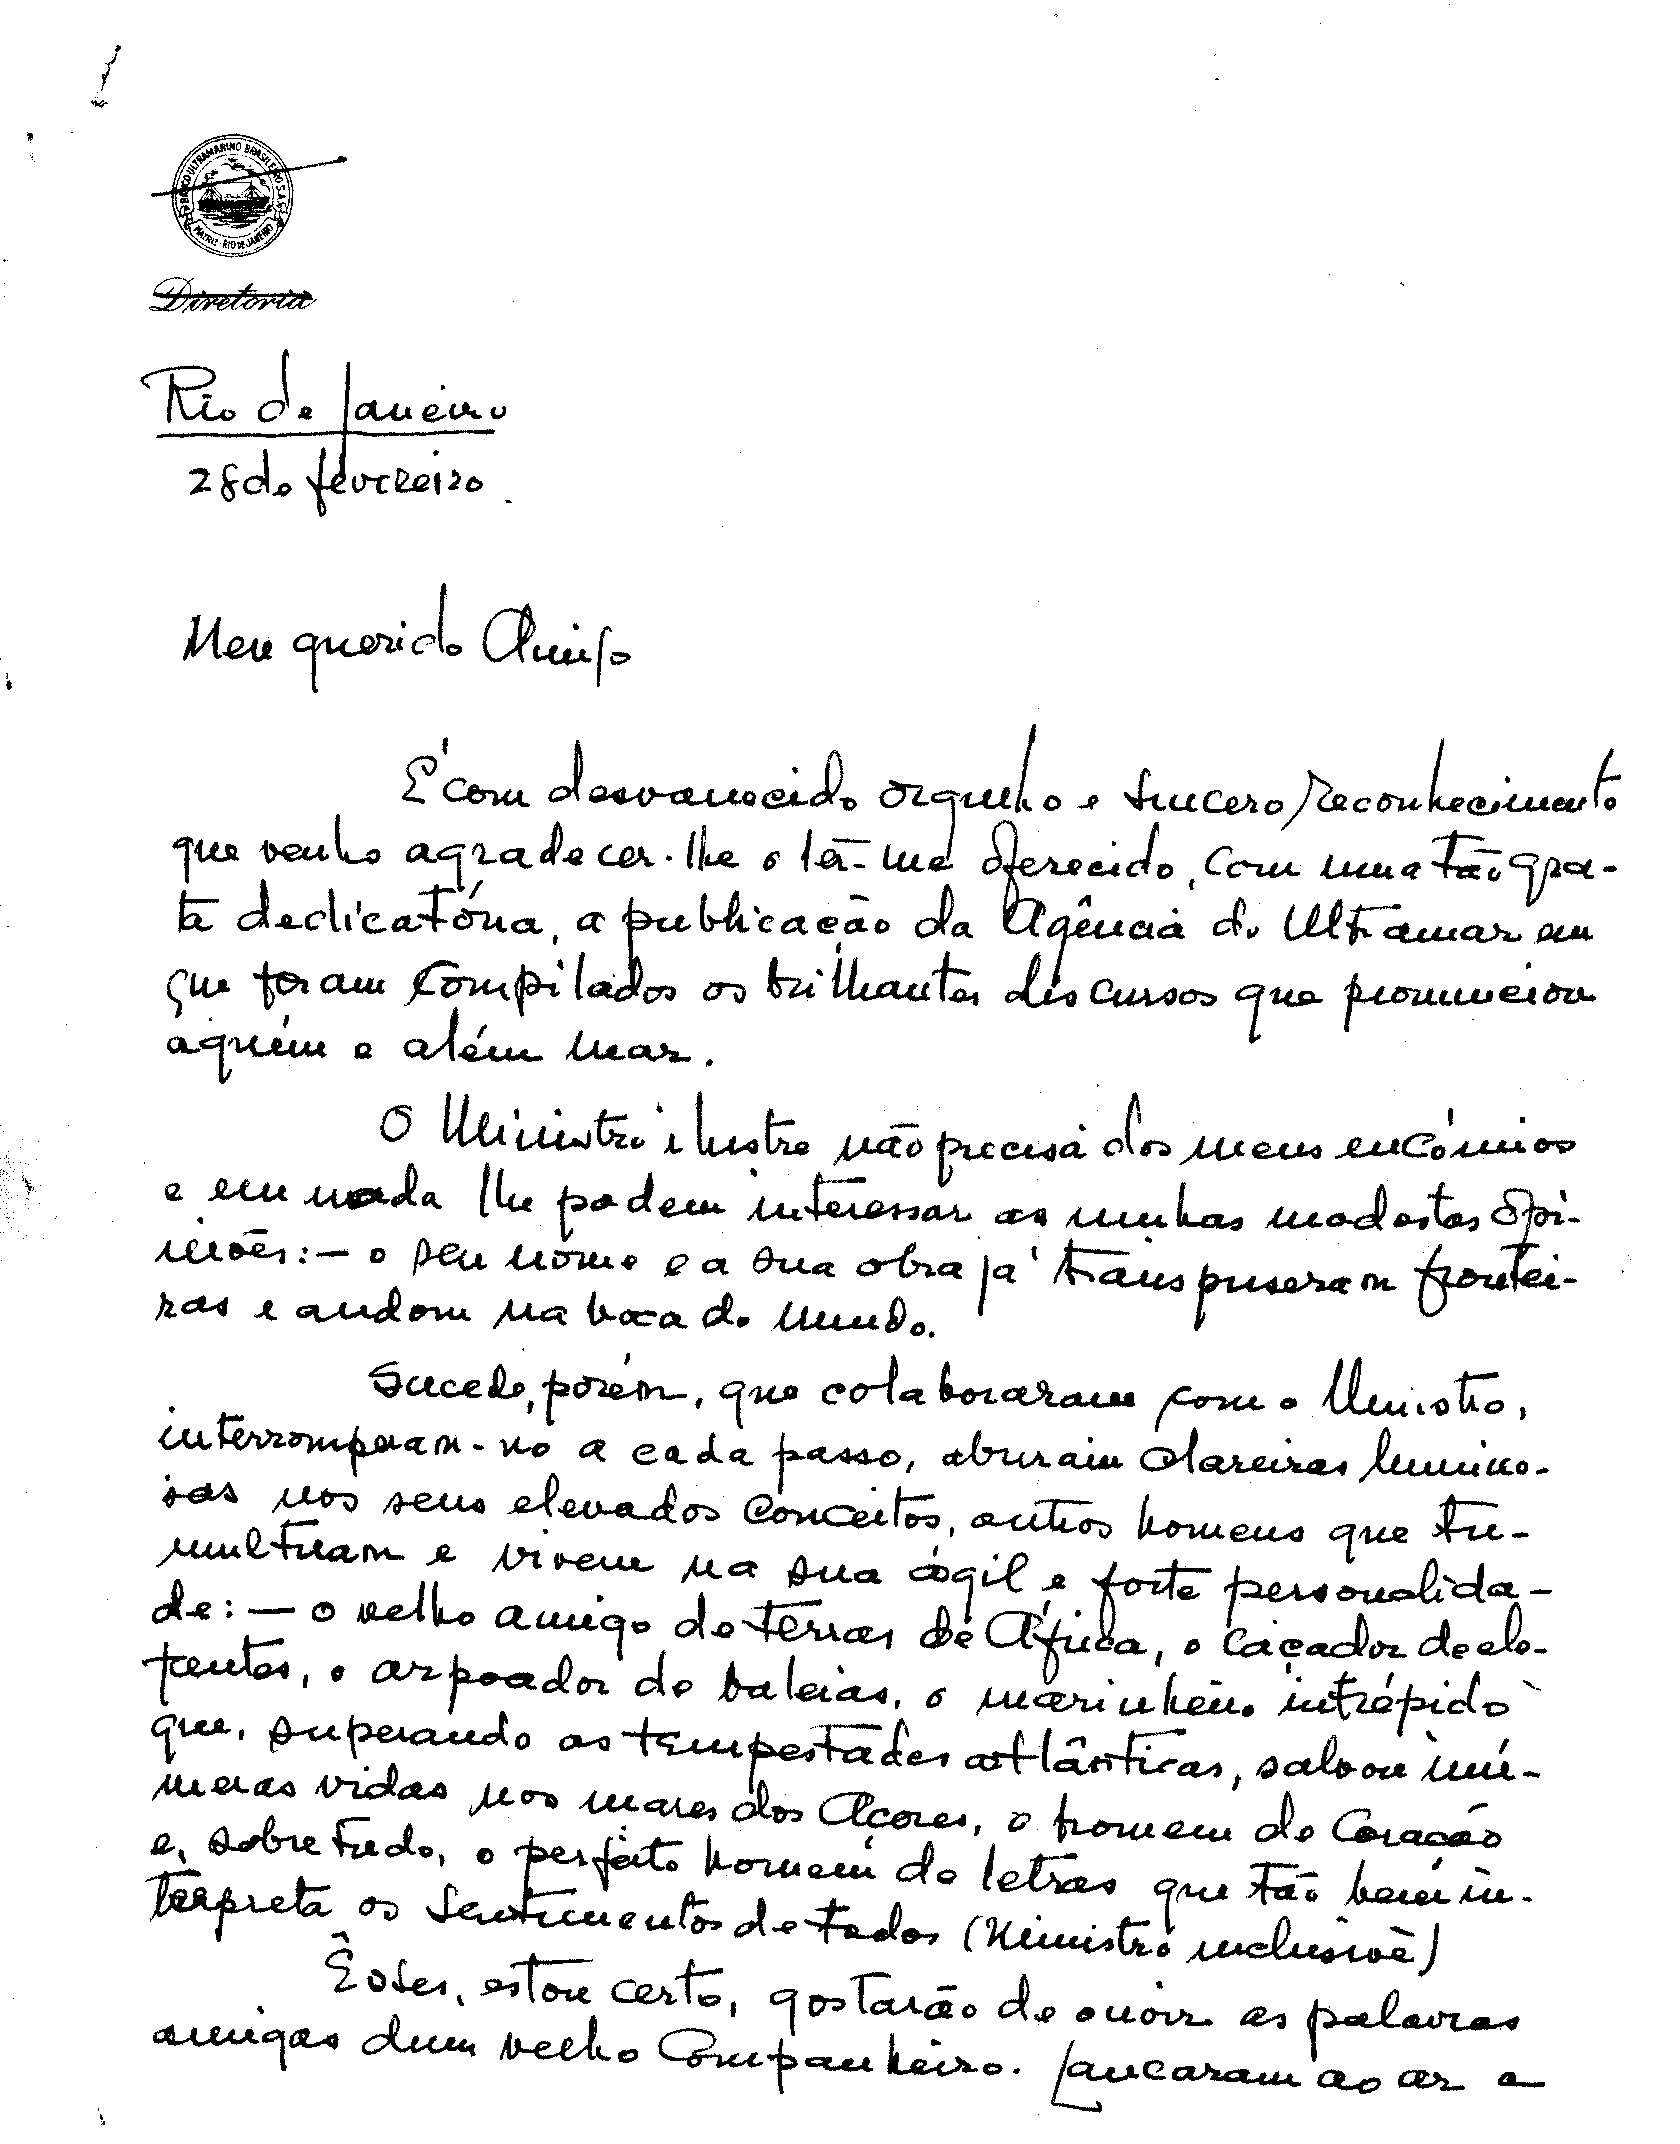 BANCO ULTRAMARINO BRASILEIRO S.A.
MATRIZ - RIO DE JANEIRO
Diretoria
Rio de Janeiro
28 de fevereiro
Meu querido Amigo
É com desvanecido orgulho e sincero reconhecimento
que venho agradecer-lhe o ter-me oferecido, com uma tão gra-
ta dedicatória, a publicação da Agência do Ultramar em
que foram compilados os brilhantes discursos que pronunciou
aquém e além mar.
O Ministro ilustre não precisa dos meus encómios
e em nada lhe podem interessar as minhas modestas opi-
niões: - o seu nome e a sua obra já transpuseram frontei-
ras e andam na boca do mundo.
Sucede, porém, que colaboraram com o Ministro,
interromperam-no a cada passo, abriram clareiras lumino-
sas nos seus elevados conceitos, outros homens que tu-
multuam e vivem na sua ágil e forte personalida-
de: - o velho amigo de terras de África, o caçador de ele-
fantes, o arpoador de baleias, o marinheiro intrépido
que, superando as tempestades atlânticas, salvou inú-
meras vidas nos mares dos Açores, o homem de coração
e, sobretudo, o perfeito homem de letras que tão bem in-
terpreta os sentimentos de todos (Ministro inclusivè)
Êsses, estou certo, gostarão de ouvir as palavras
amigas dum velho companheiro. Lançaram ao ar a